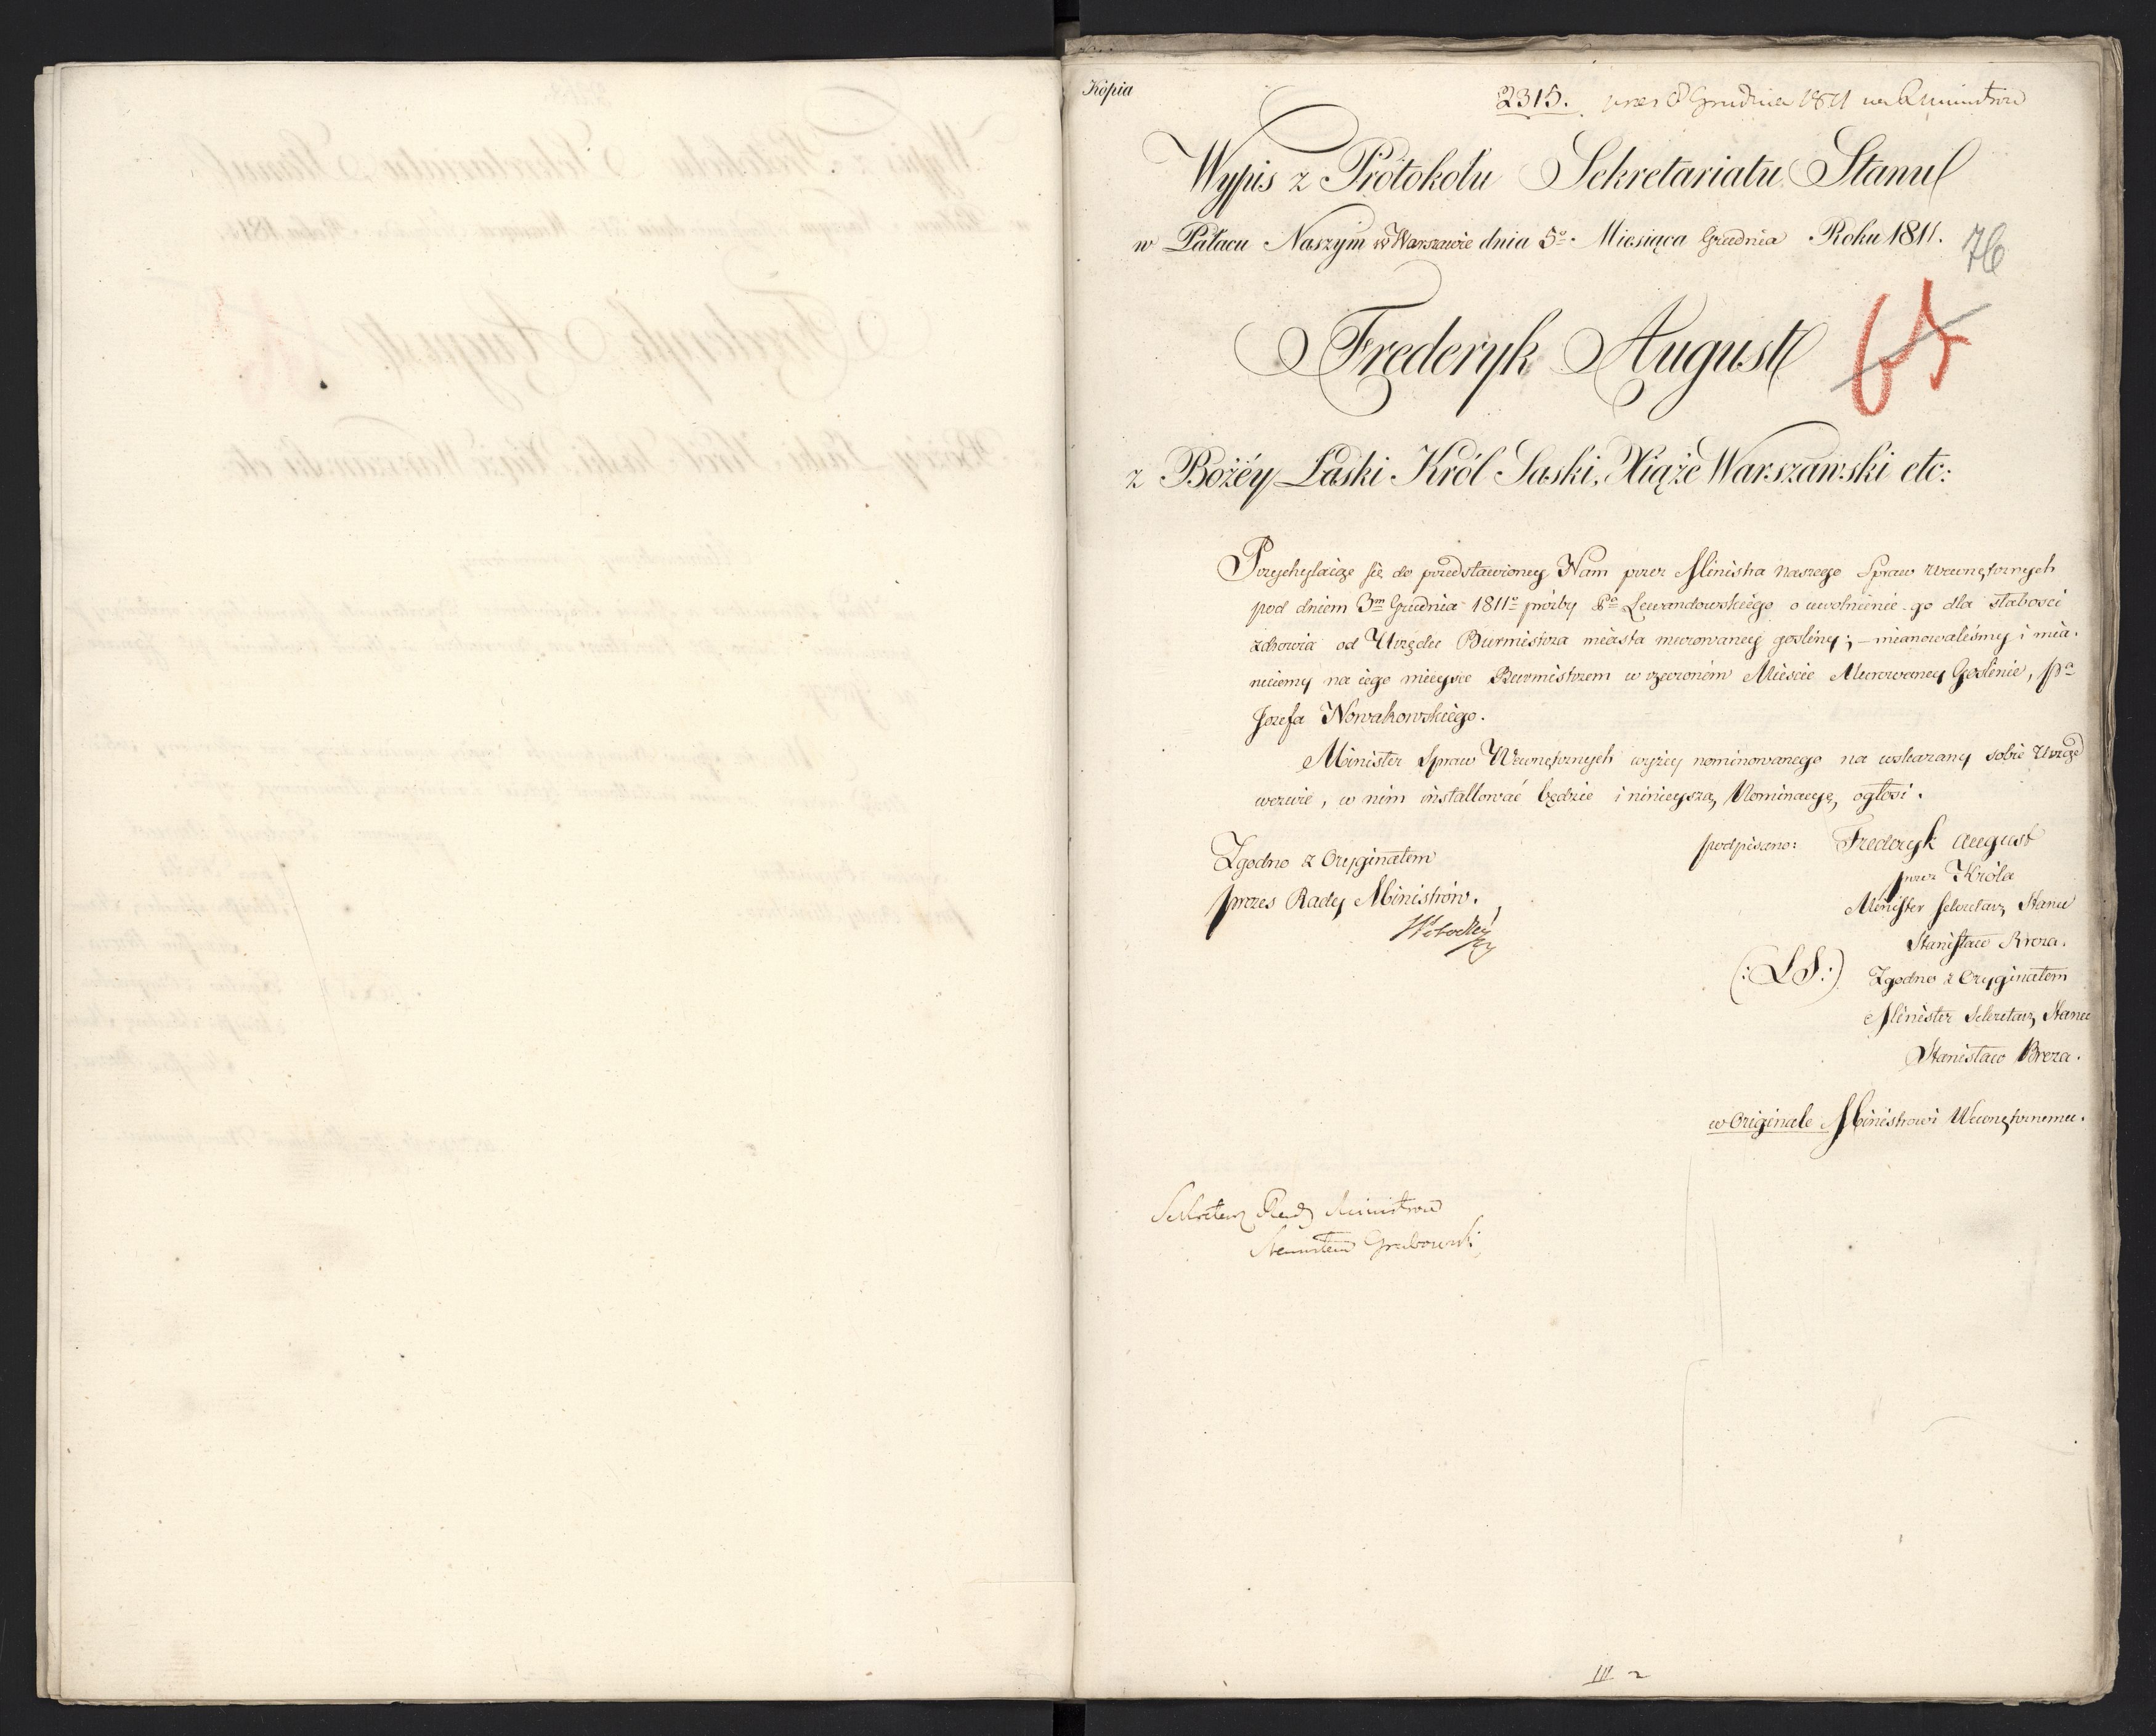 Kopia
2315. 8 Grudnia 1811
Wypis z Protokołu Sekretariatu Stanu
w Pałacu Naszym w Warszawie dnia 5º Miesiąca Grudnia Roku 1811.
76
Frederyk August
65
z Bożéy Łaski Król Saski, Xiąże Warszawski etc:
Przychylaiąc się do przedstawioney Nam przez Ministra Naszego Spraw Wewnętrznych
pod dniem 3m Grudnia 1811º prośby Pº Lewandowskiego o uwolnienie go dla słabości
zdrowia od Urzędu Burmistrza miasta murowaney gośliny; – mianowaliśmy i mia-
nuiemy na iego mieysce Burmistrzem w rzeczoném Mieście Murowaney Goślinie, Pª
Jozefa Nowakowskiego.
Minister Spraw Wewnętrznych wyżey nominowanego na wskazany sobie Urząd
wezwie, w nim installować będzie i ninieyszą Nominacyę, ogłosi.
Zgodno z Oryginałem
prezes Rady Ministrów.
podpisano: Frederyk August
przez Króla
Minister Sekretarz Stanu
Stanisław Breza.
(:LS:) Zgodno z Oryginałem
Minister Sekretarz Stanu
Stanisław Breza.
w Originale Ministrowi Wewnętrznemu.
Sekretarz Rady Ministrow
Stanisław Grabowski
III 2